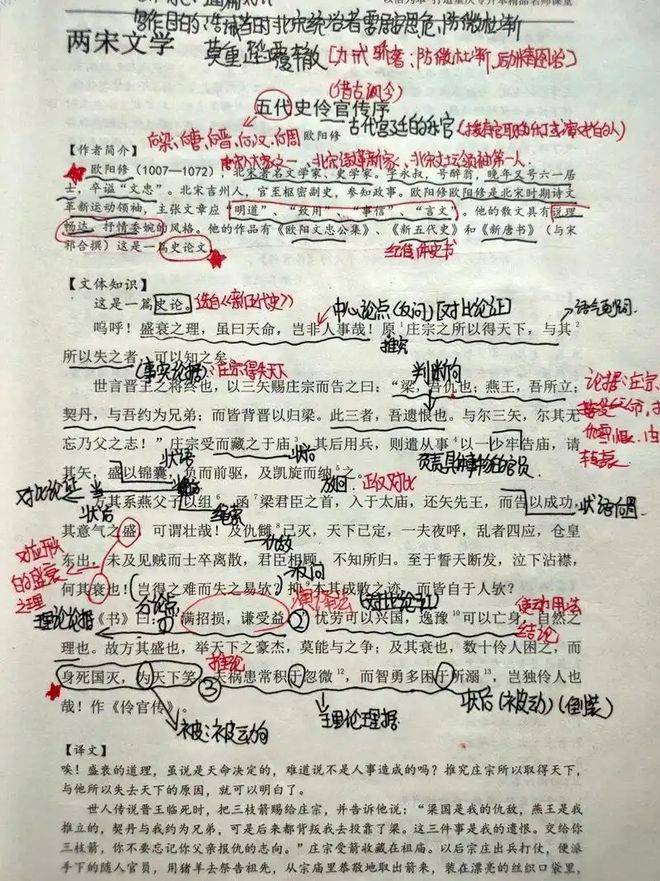 写作目的:告诫当时北宋统治者要居安思危、防微杜渐
两宋文学
莫重蹈覆辙[力戒骄奢、防微杜渐、励精图治]
(借古讽今)
五代史伶官传序
古代宫廷的乐官
后梁、后唐、后晋、后汉、后周
欧阳修
【作者简介】
欧阳修(1007—1072),北宋著名文学家、史学家。字永叔,号醉翁,晚年又号六一居
士,卒谥“文忠”。北宋吉州人,官至枢密副史,参知政事。欧阳修欧阳修是北宋时期诗文
革新运动领袖,主张文章应“明道”、“致用”、“事信”、“言文”。他的散文具有说理
畅达、抒情委婉的风格。他的作品有《欧阳文忠公集》、《新五代史》和《新唐书》(与宋
祁合撰)这是一篇史论文
纪传体史书
【文体知识】
这是一篇史论。
选自《新五代史》
中心论点(反问)[对比论证]
呜呼!盛衰之理,虽曰天命,岂非人事哉!原1庄宗之所以得天下,与其2
推究
所以失之者,可以知之矣。
(事实论据):庄宗得失天下
判断句
世言晋王之将终也,以三矢赐庄宗而告之曰:“梁,吾仇也;燕王,吾所立;
契丹,与吾约为兄弟;而皆背晋以归梁。此三者,吾遗恨也。与尔三矢,尔其无
忘乃父之志!”庄宗受而藏之于庙3。其后用兵,则遣从事4以一少牢告庙,请
其矢,盛以锦囊,负而前驱,及凯旋而纳5之。
状语
状后
负责具体事物的官员
对比论证
方其系燕父子以组6,函7梁君臣之首,入于太庙,还矢先王,而告以成功,
绳索
正反对比
状语后置
其意气之盛,可谓壮哉!及仇雠8已灭,天下已定,一夫夜呼,乱者四应,仓皇
东出,未及见贼而士卒离散,君臣相顾,不知所归。至于誓天断发,泣下沾襟,
何其衰也!(岂得之难而失之易欤?)抑9本其成败之迹,而皆自于人欤?
反问
理论论据
分论点
《书》曰:“满招损,谦受益。”②忧劳可以兴国,逸豫10可以亡身,自然之
(对比论证)
使动用法
结论
理也。故方其盛也,举天下之豪杰,莫能与之争;及其衰也,数十伶人困之,而
推论
身死国灭,为天下笑。③夫祸患常积于忽微12,而智勇多困于所溺13,岂独伶人也
哉!作《伶官传》。
被:被动句
理论论据
状后(被动)(倒装)
【译文】
唉!盛衰的道理,虽说是天命决定的,难道说不是人事造成的吗?推究庄宗所以取得天下,
与他所以失去天下的原因,就可以明白了。
世人传说晋王临死时,把三枝箭赐给庄宗,并告诉他说:“梁国是我的仇敌,燕王是我
推立的,契丹与我约为兄弟,可是后来都背叛我去投靠了梁。这三件事是我的遗恨。交给你
三枝箭,你不要忘记你父亲报仇的志向。”庄宗受箭收藏在祖庙。以后庄宗出兵打仗,便派
手下的随人官员,用猪羊去祭告祖先,从宗庙里恭敬地取出箭来,装在漂亮的丝织口袋里,